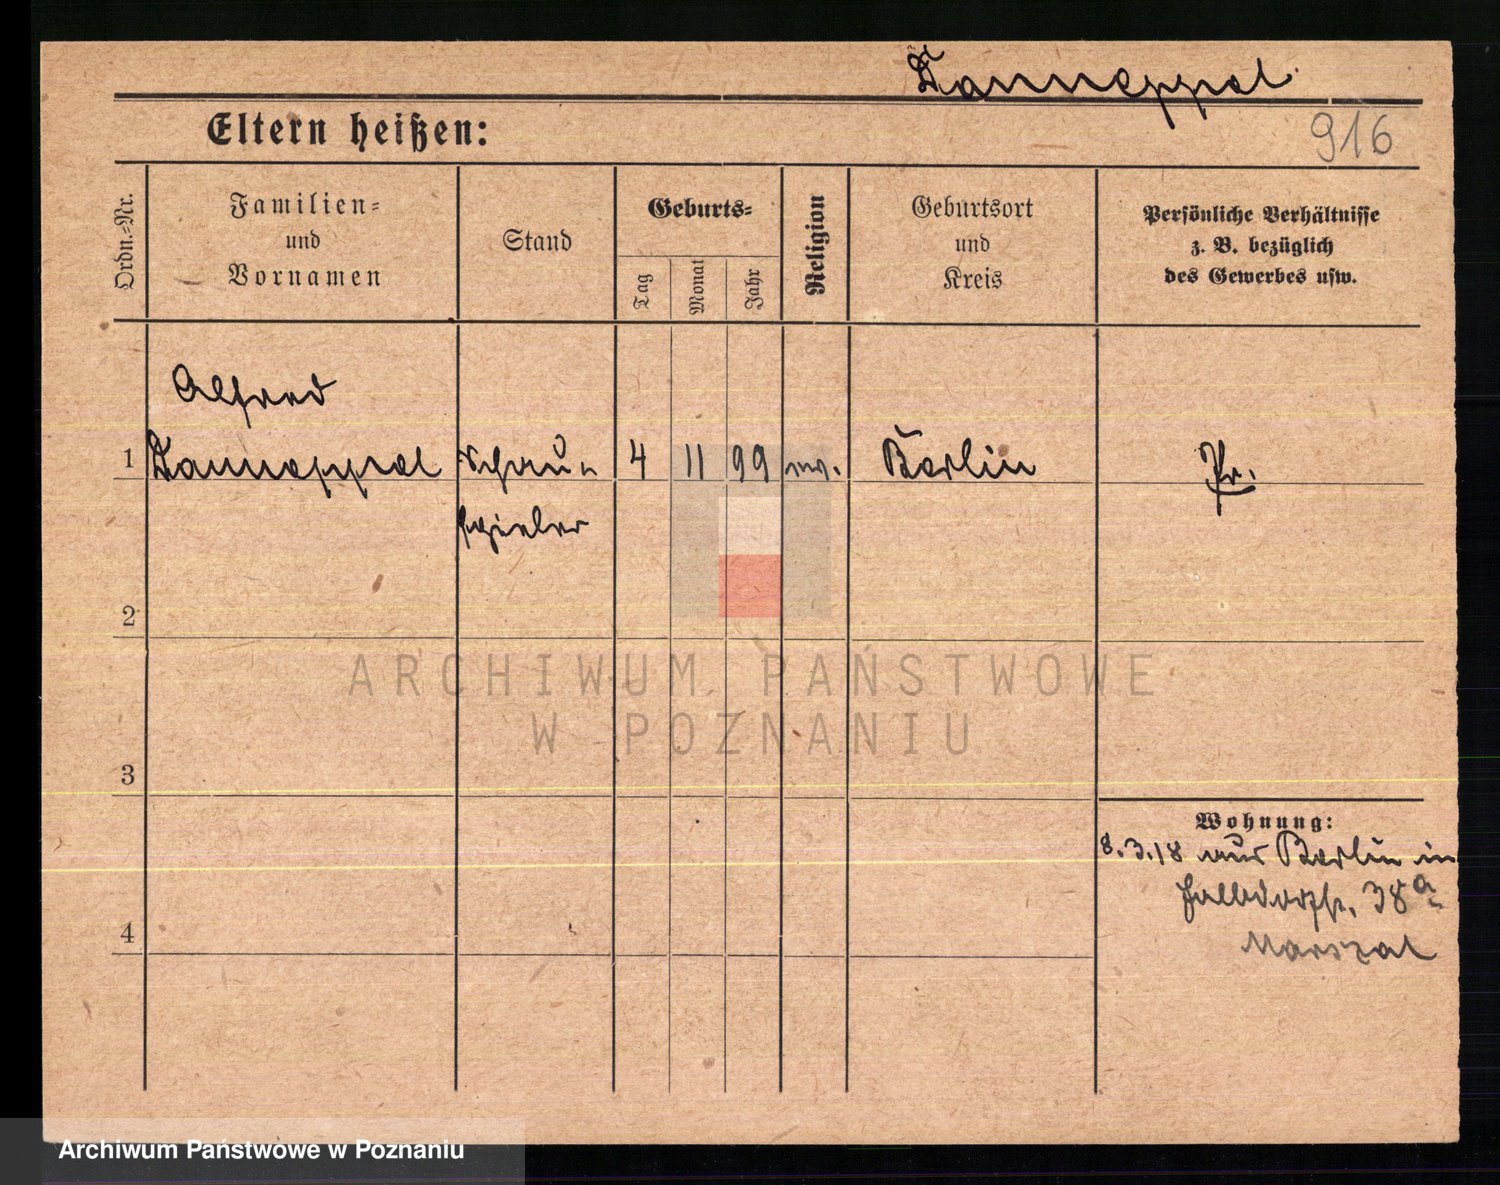 Tannappel
Eltern heißen:
916
Ordn.-Nr.
Familien-
und
Vornamen
Stand
Geburts-
Tag
Monat
Jahr
Religion
Geburtsort
und
Kreis
Persönliche Verhältnisse
z. B. bezüglich
des Gewerbes usw.
Alfred
1 Tannappel Schau- 4 11 99 ev. Berlin Pr.
spieler
2
ARCHIWUM PAŃSTWOWE
W POZNANIU
3
Wohnung:
8.3.18 aus Berlin in
38a
4
Marszal
Archiwum Państwowe w Poznaniu